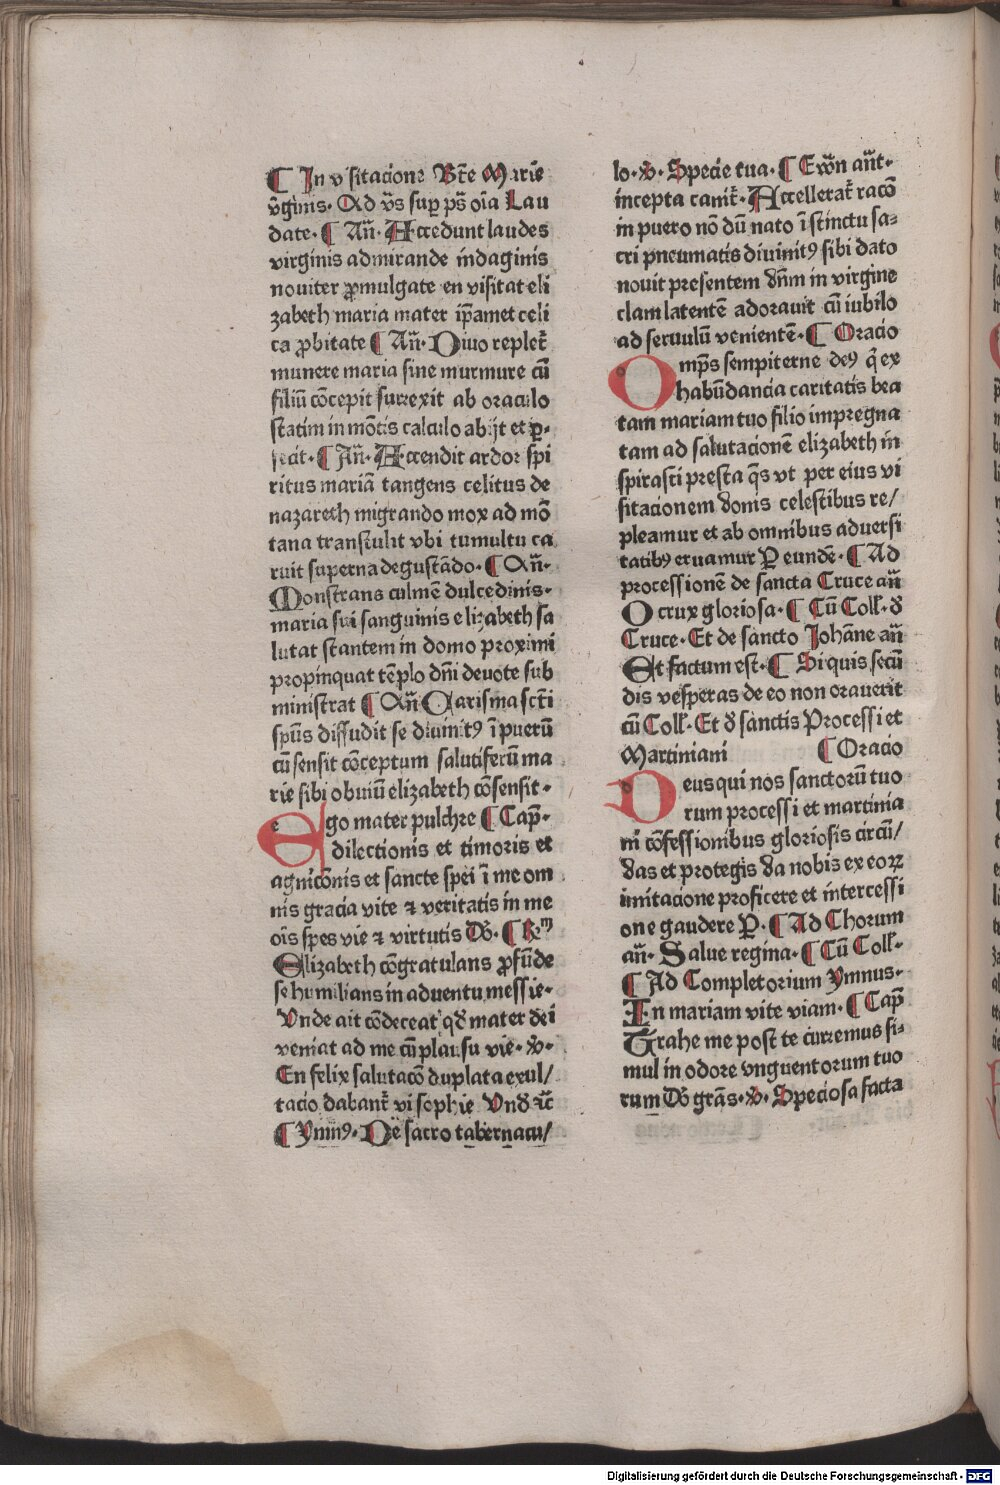 ¶ In visitacione Bte Marie
v̄ginis. Ad vs̄ sup̱ ps̄ oīa Lau
date. ¶ Añ. Accedunt laudes
virginis admirande indaginis
nouiter ꝓmulgate en visitat eli
zabeth maria mater ip̄amet celi
ca ꝓbitate ¶ Añ. Diuo replet᷑
munere maria sine murmure cū
filiū cōcepit surrexit ab oraculo
statim in mōtis calculo abijt et ꝑ-
fecit. ¶ Añ. Accendit ardor spi
ritus mariā tangens celitus de
nazareth migrando mox ad mō
tana transtulit vbi tumultu ca
ruit superna degustādo. ¶ Añ.
Monstrans culmē dulcedinis.
maria sui sanguinis elizabeth sa
lutat stantem in domo proximi
propinquat tēplo dn̄i deuote sub
ministrat ¶ Añ Carisma scti
spūs diffudit se diuinitꝰ ī puerū
cū sensit cōceptum salutiferū ma
rie sibi obuiū elizabeth cōsensit.
Ego mater pulchre ¶ Cap̄.
dilectionis et timoris et
agnicōnis et sancte spei ī me om
nis gracia vite ⁊ veritatis in me
oīs spes vie ⁊ virtutis Dō. ¶ Rem
Elizabeth cōgratulans ꝓfūde
se humilians in aduentu messie.
Vnde ait cōdeceat qd̄ mater dei
veniat ad me cū plausu vie. v̄.
En felix salutacō duplata exul/
tacio dabant᷑ vi sophie Vnd̄ r̄c
¶ Ymnꝰ. De sacro tabernacu/
lo. v̄. Specie tua. ¶ Ewn añt.
incepta canit᷑. Accellerat᷑ racō
in puero nō dū nato ī stinctu sa-
cri pneumatis diuinitꝰ sibi dato
nouit presentem dn̄m in virgine
clam latentē adorauit cū iubilo
ad seruulū venientē. ¶ Oracio
Omps̄ sempiterne deꝰ q̄ ex
habūdancia caritatis bea
tam mariam tuo filio impregna
tam ad salutacionē elizabeth in
spirasti presta qs̄ vt per eius vi
sitacionem donis celestibus re/
pleamur et ab omnibus aduersi
tatibꝰ eruamur P̱ eundē. ¶ Ad
processionē de sancta Cruce añ
O crux gloriosa. ¶ Cū Coll. d̄
Cruce. Et de sancto Johāne añ
Et factum est. ¶ Si quis secū
dis vesperas de eo non orauerit
cū Coll. Et d̄ sanctis Processi et
Martiniani ¶ Oracio
Deus qui nos sanctorū tuo
rum processi et martinia
ni cōfessionibus gloriosis circū/
das et protegis da nobis ex eoꝝ
imitacione proficere et intercessi
one gaudere P̱. ¶ Ad Chorum
añ. Salue regina. ¶ Cū Coll.
¶ Ad Completorium Ymnus.
In mariam vite viam. ¶ Cap̄
Trahe me post te curremus si-
mul in odore vnguentorum tuo
rum Dō grās. v̄. Speciosa facta
Digitalisierung gefördert durch die Deutsche Forschungsgemeinschaft - DFG